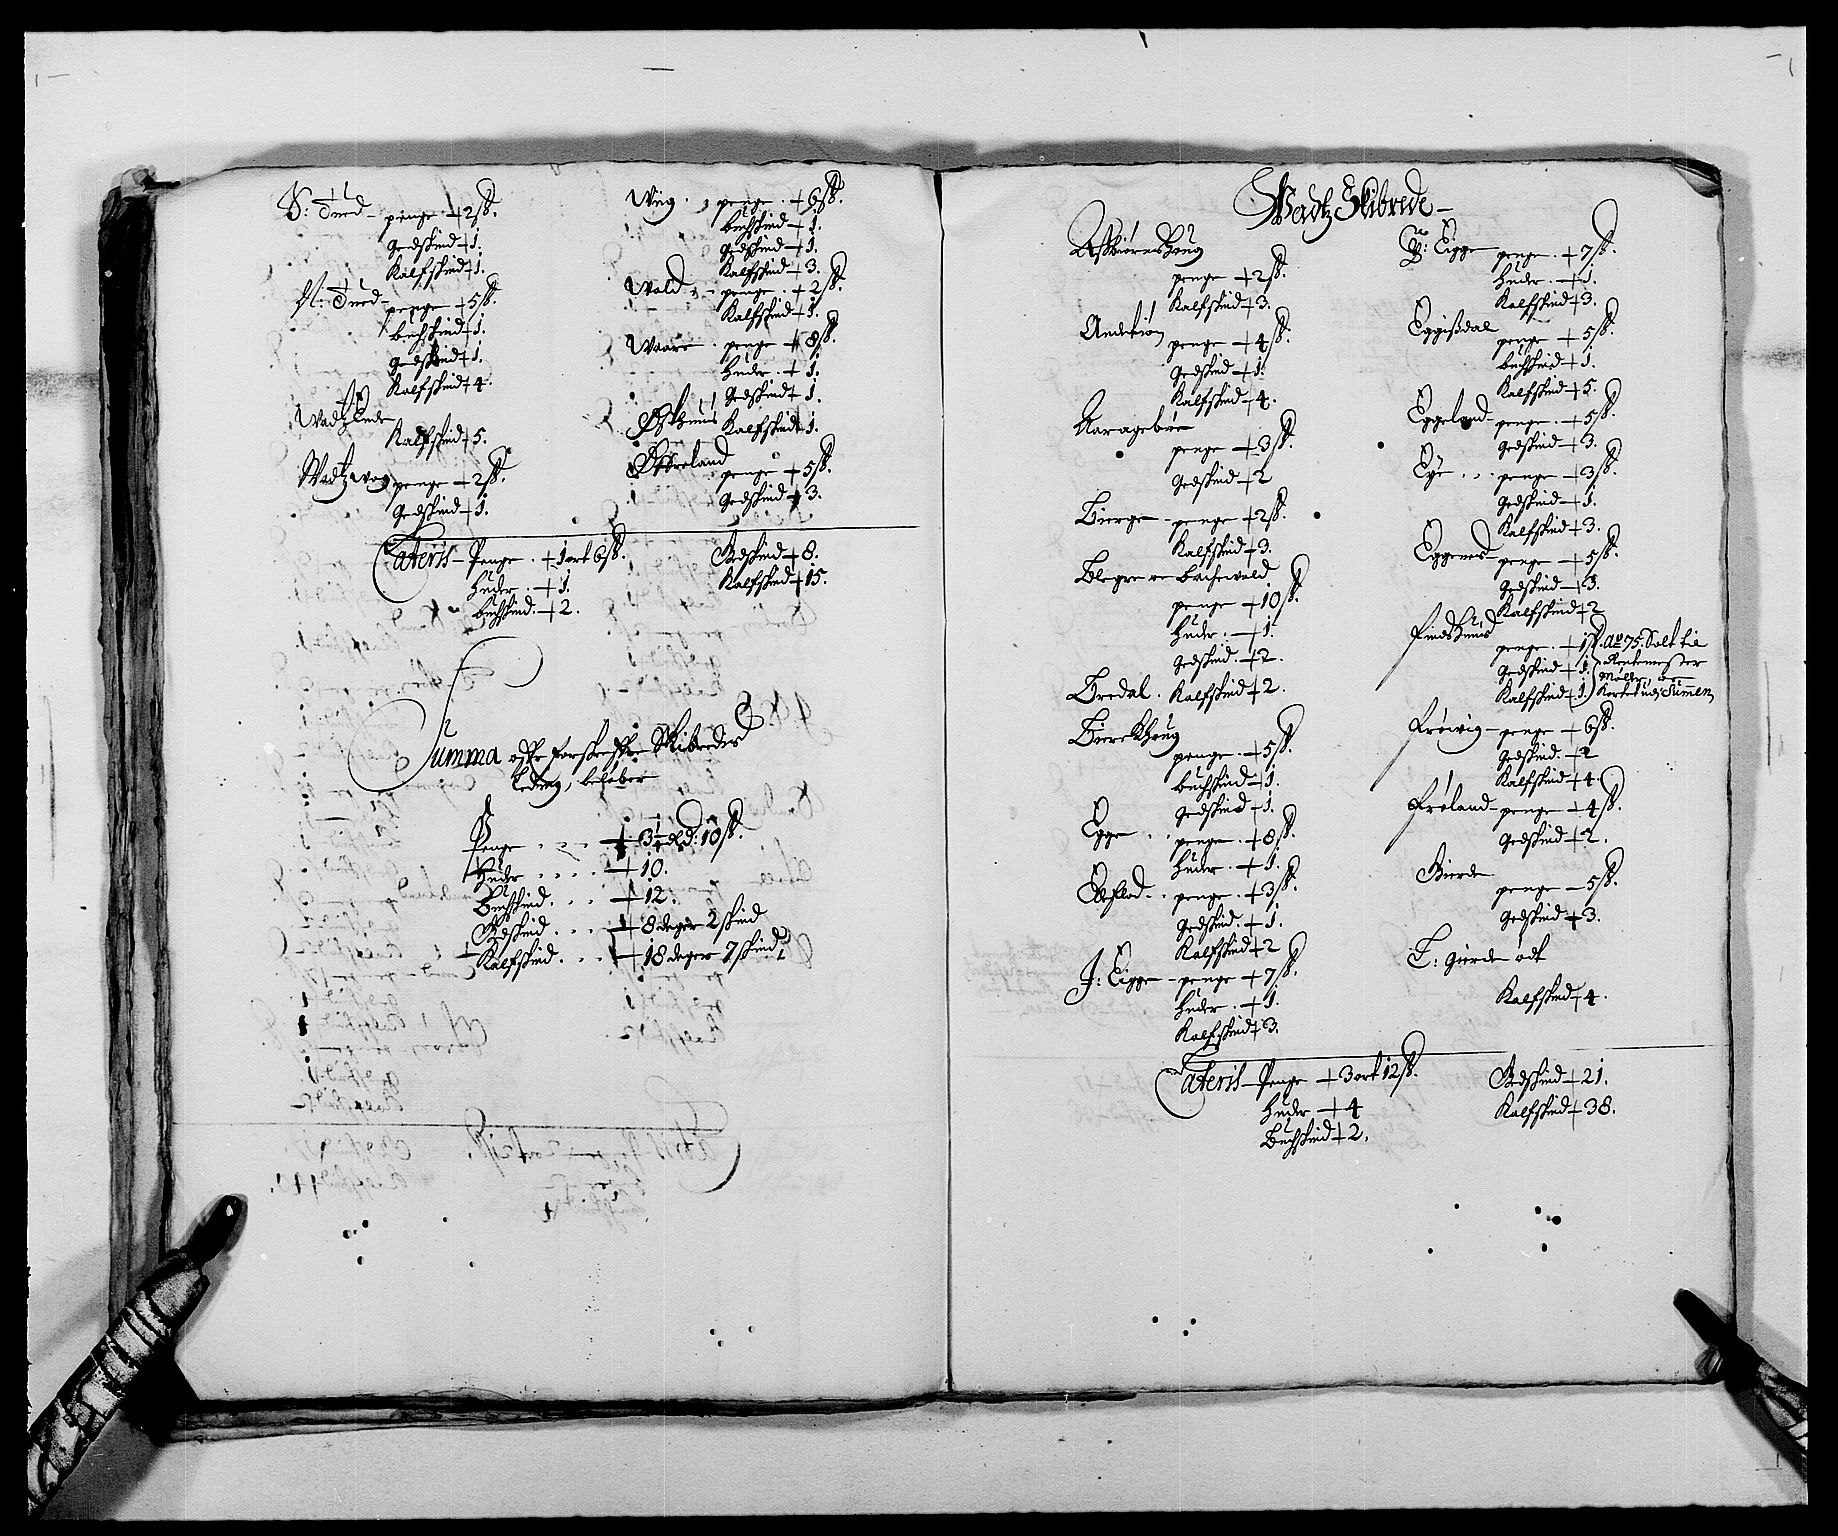 S: Tued penge + 2 ß.
Gedskind + 1.
Kalfskind + 1.
N: Tued penge + 5 ß.
buchskind + 1.
Gedskind + 1.
Kalfskind + 4.
Wadtzlede
Kalfskind + 5.
Wadtzwog penge + 2 ß.
Gedskind + 1.
Wiig penge + 6 ß.
buchskind + 1.
Gedskind + 1.
Kalfskind + 3.
Wold penge + 2 ß.
Kalfskind + 1.
Waare penge + 8 ß.
huder + 1.
Gedskind + 1.
Østhuus Kalfskind + 1.
Østreland
penge + 5 ß.
Gedskind + 3.
Lateris Penge + 1 ort 6 ß.
huder + 1.
buchskind + 2.
Gedskind + 8.
Kalfskind + 15.
Summa offr forskreffne Skibreder
Leding, beløber
Penge + 3 1/4 Rd: 10 ß.
Huder + 10.
Buchskind + 12.
Gedskind + 8 deger 2 skind
Kalfskind + 18 deger 7 skind
Wadtz Skibrede
Asbiørnshoug
penge + 2 ß.
Kalfskind + 3.
Andetiøn
penge + 4 ß.
Gedskind + 1.
Kalfskind + 4.
Aaragebøe
penge + 3 ß.
Gedskind + 2
Bierge penge + 2 ß.
Kalfskind + 3.
Blegere bachewold
penge + 10 ß.
huder + 1.
Gedskind + 2.
Bredal Kalfskind + 2.
Bierckhoug
penge + 5 ß.
buchskind + 1.
Gedskind + 1.
Egge penge + 8 ß.
huder + 1.
penge + 3 ß.
Gedskind + 1.
Kalfskind + 2
J: Eigge penge + 7 ß.
huder + 1.
Kalfskind + 3.
Eigge penge + 7 ß.
huder + 1.
Kalfskind + 3.
Eggisdal
penge + 5 ß.
buchskind + 1.
Kalfskind + 5.
Eggeland penge + 5 ß.
Gedskind + 3.
Eye penge + 3 ß.
Gedskind + 1.
Kalfskind + 3.
Eggenes penge + 5 ß.
Gedskind + 3.
Kalfskind + 2
Findshuus
penge + 1 ß. Ao 75. Solt til
Gedskind + 1. Rentemester
Møller,
Kalfskind + 1. Kortet udj Summen
Frøwig penge + 6 ß.
Gedskind + 2
Kalfskind + 4.
Frøland penge + 4 ß.
Gedskind + 2.
Gierde
penge 5 ß.
Gedskind + 3.
L: gierde ødt
Kalfskind + 4.
Lateris Penge + 3 ort 12 ß.
Huder + 4
Buchskind + 2.
Gedskind + 21.
Kalfskind + 38.